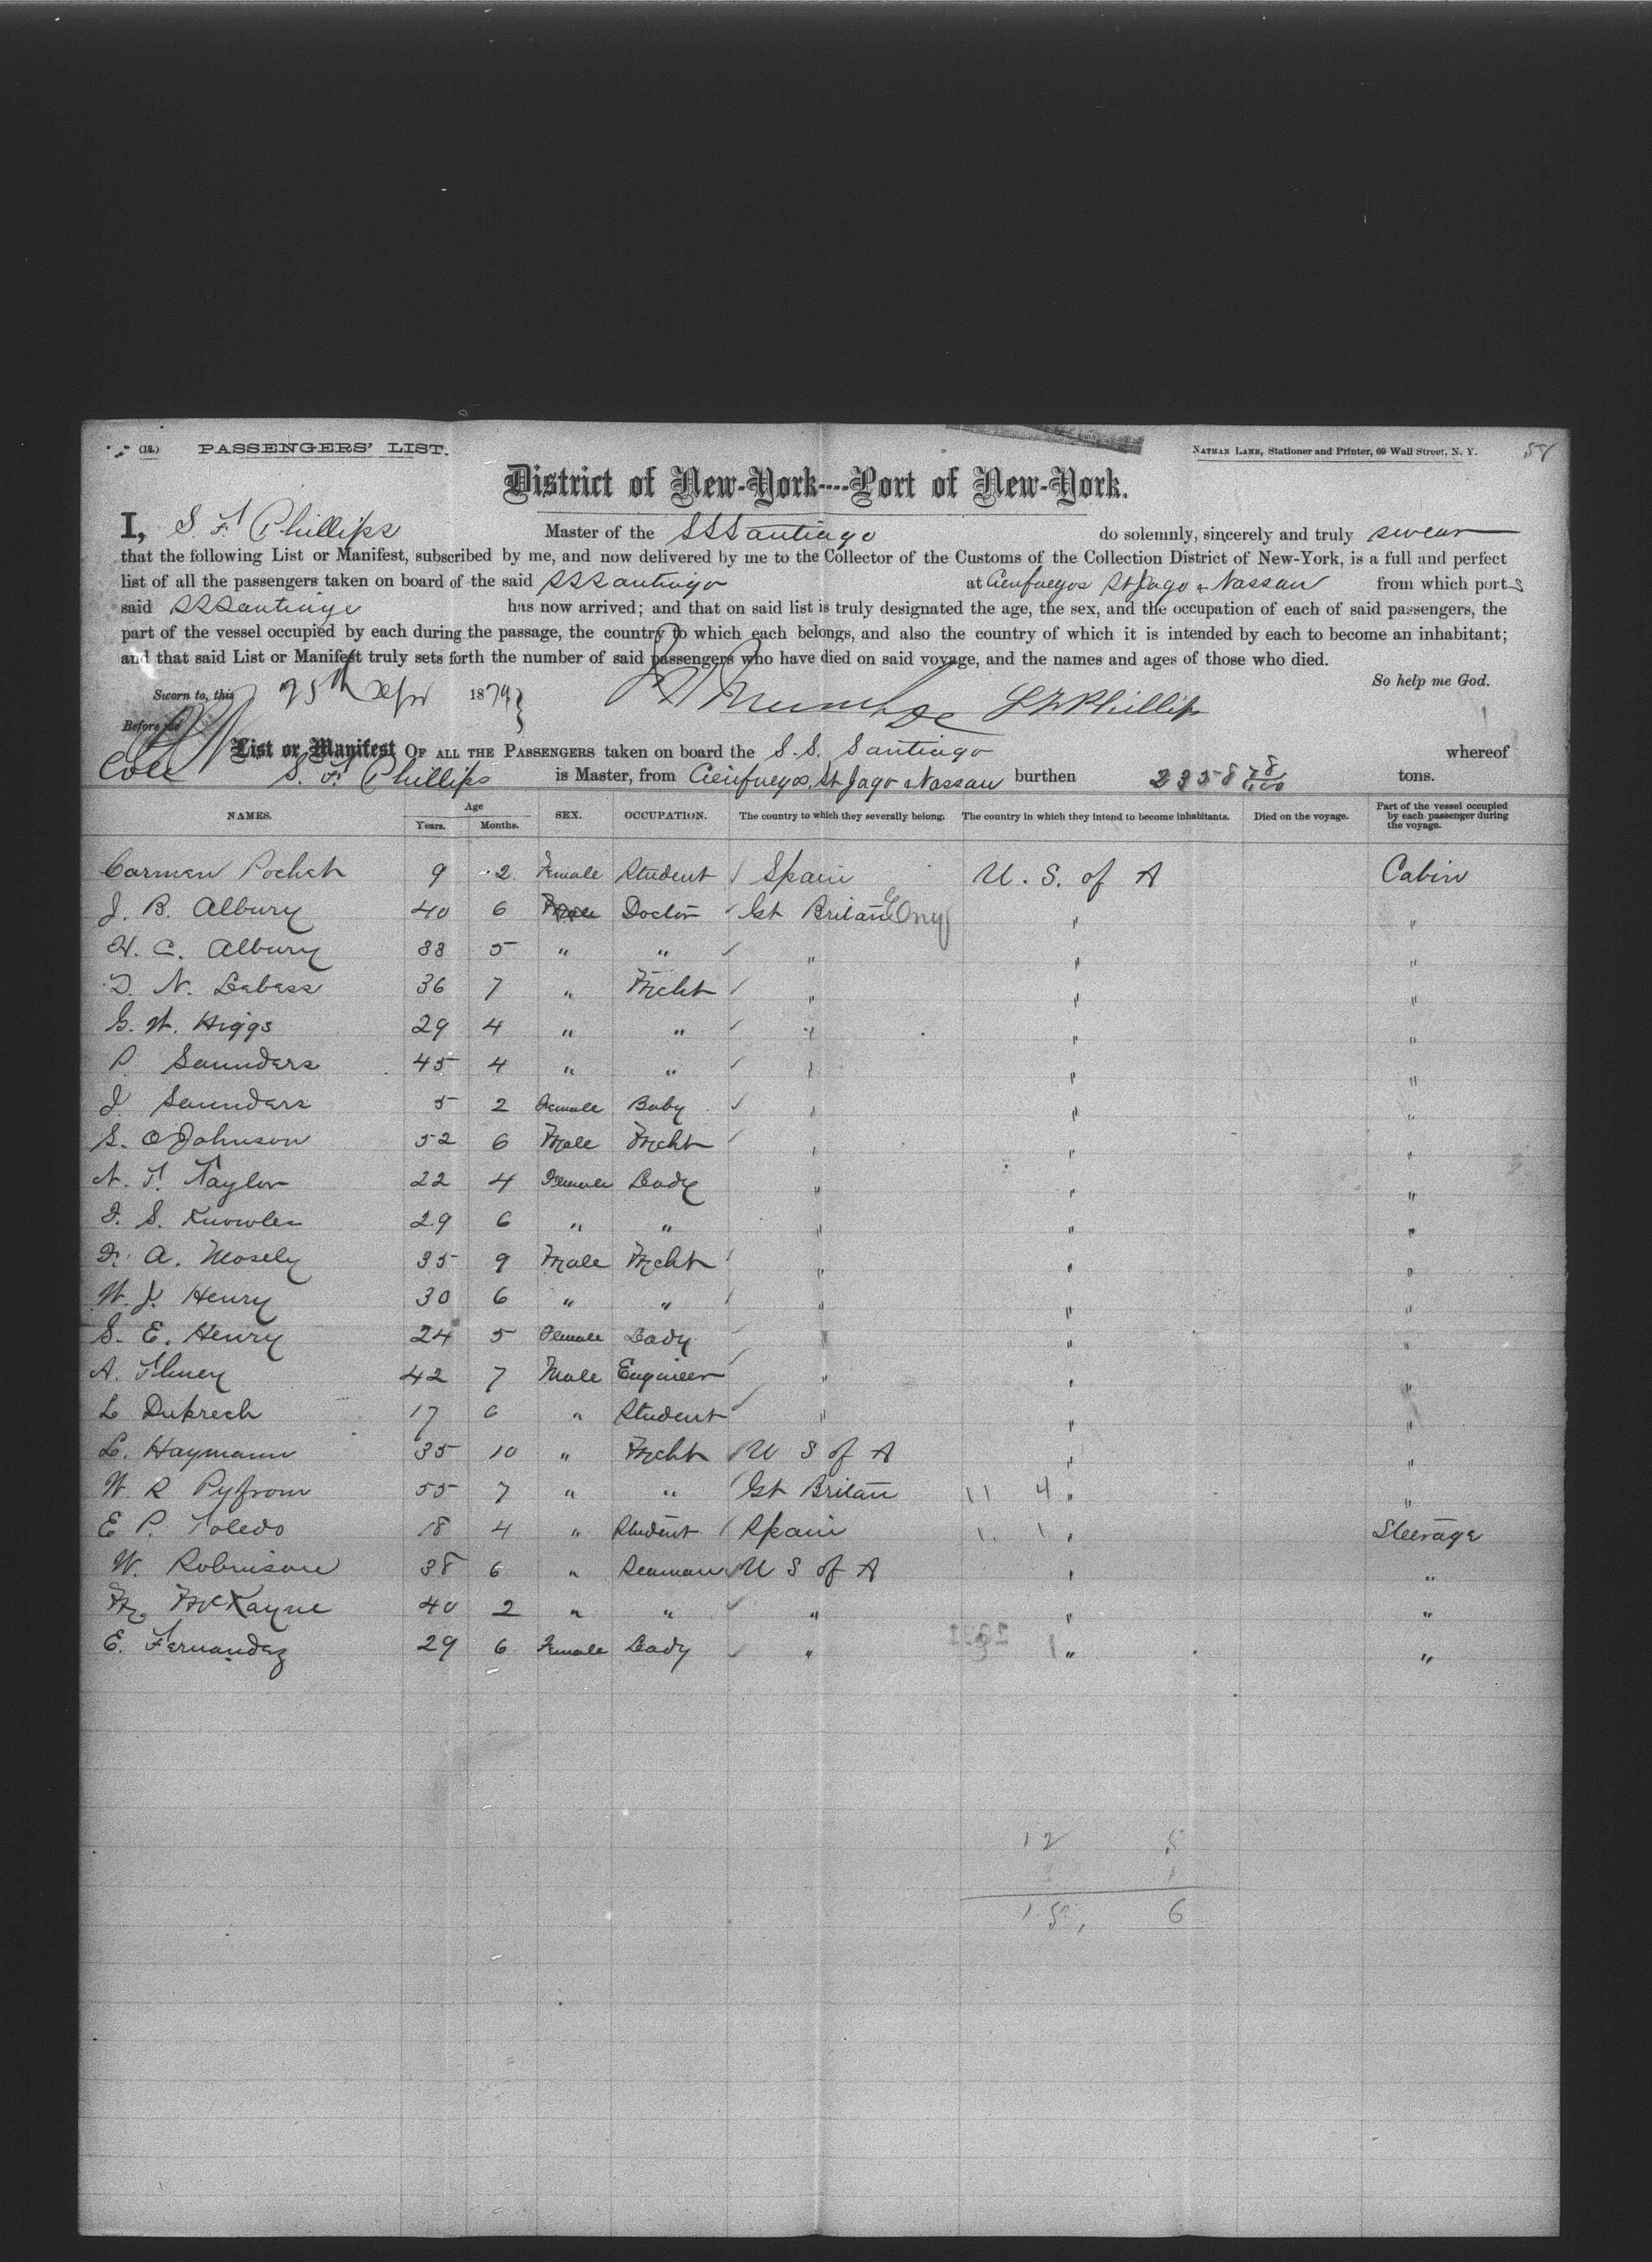 (18.) PASSENGERS' LIST.
NATHAN LANE, Stationer and Printer, 69 Wall Street, N. Y.
District of New-York----Port of New-York.
I, S. F. Phillips Master of the SS Santiago do solemnly, sincerely and truly swear
that the following List or Manifest, subscribed by me, and now delivered by me to the Collector of the Customs of the Collection District of New-York, is a full and perfect
list of all the passengers taken on board of the said SS Santiago at Cienfuegos St Jago & Nassau from which ports
said SS Santiago has now arrived; and that on said list is truly designated the age, the sex, and the occupation of each of said passengers, the
part of the vessel occupied by each during the passage, the country to which each belongs, and also the country of which it is intended by each to become an inhabitant;
and that said List or Manifest truly sets forth the number of said passengers who have died on said voyage, and the names and ages of those who died.
So help me God.
Sworn to, this 25th 1879 S F Phillips
Before me
List or Manifest OF ALL THE PASSENGERS taken on board the S. S. Santiago whereof
S. F. Phillips is Master, from Cienfuegos, St Jago & Nassau burthen 2358 78/100 tons.
NAMES. Age Years. Months. SEX. OCCUPATION. The country to which they severally belong. The country in which they intend to become inhabitants. Died on the voyage. Part of the vessel occupied by each passenger during the voyage.
Carmen Pochet 9 2 Female Student Spain U. S. of A Cabin
J. B. Albury 40 6 Male Doctor Gt Britan " "
H. C. Albury 33 5 " " " " "
D. N. Labass 36 7 " Mcht " " "
G. W. Higgs 29 4 " " " " "
P. Saunders 45 4 " " " " "
J. Saunders 5 2 Female Baby " " "
S. O Johnson 52 6 Male Mcht " " "
N. T. Taylor 22 4 Female Lady " " "
F. S. Knowles 29 6 " " " " "
F. A. Mosely 35 9 Male Mcht " " "
W. J. Henry 30 6 " " " " "
S. E. Henry 24 5 Female Lady " " "
A. 42 7 Male Engineer " " "
L Duprech 17 6 " Student " " "
L. Haymann 35 10 " Mcht U S of A " "
W. R Pyfrom 55 7 " " Gt Britan 11 4 " "
E P. Toledo 18 4 " Student Spain 1 1 " Steerage
W. Robinson 38 6 " Seaman U S of A " "
M. McKayne 40 2 " " " " "
E. Fernandez 29 6 Female Lady " " "
12 5
6